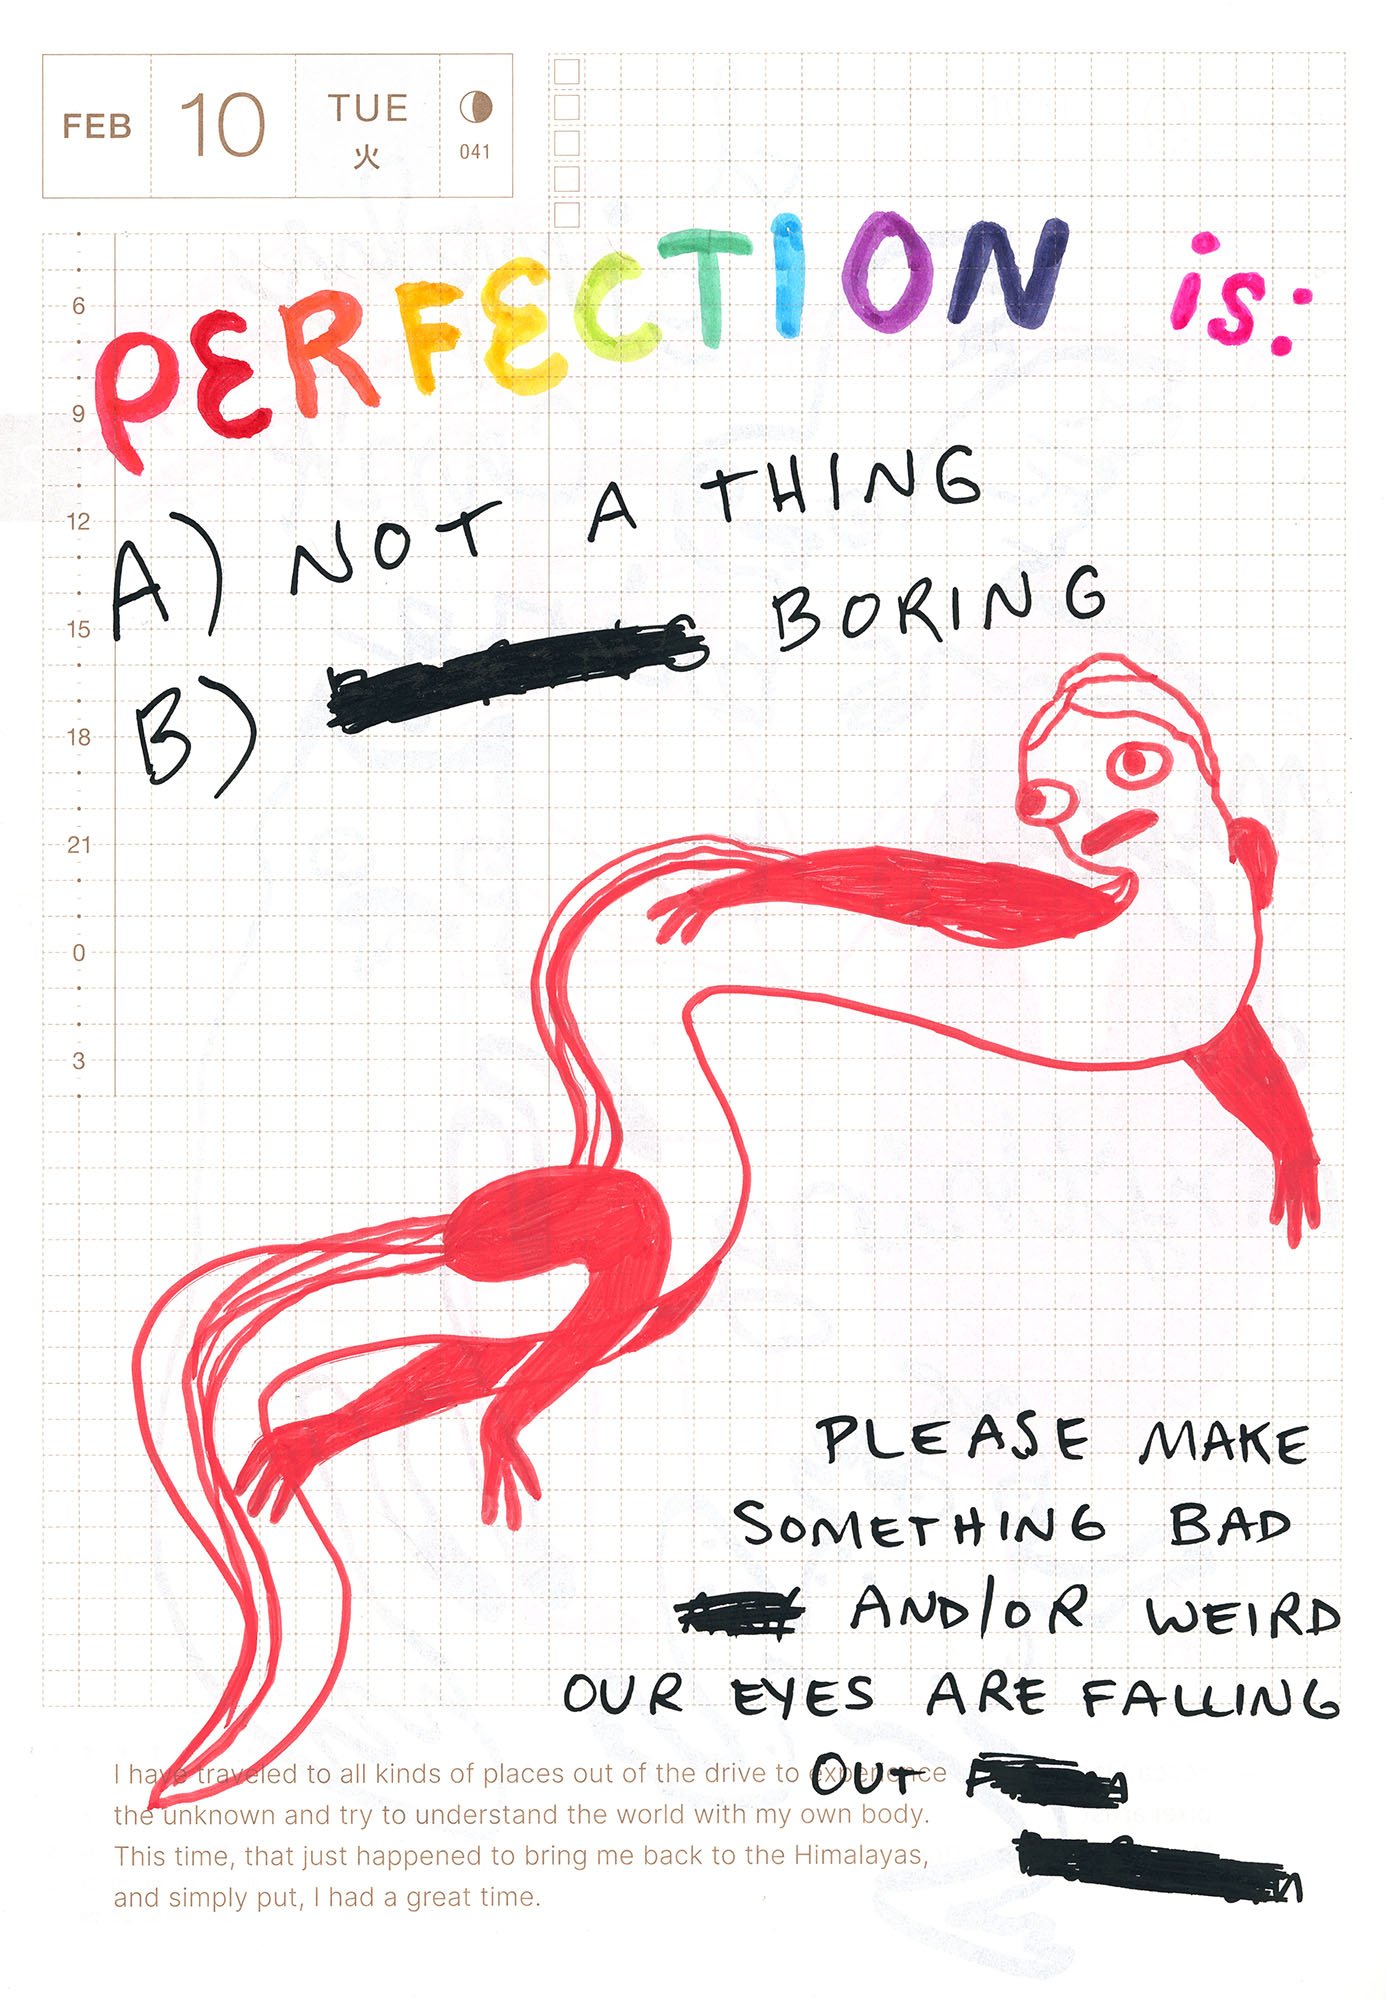 FEB 10 TUE 火 041
PERFECTION is:
6
9
12
15
18
21
0
3
A) NOT A THING
B) BORING
PLEASE MAKE
SOMETHING BAD
AND/OR WEIRD
OUR EYES ARE FALLING
OUT
I have traveled to all kinds of places out of the drive to experience
the unknown and try to understand the world with my own body.
This time, that just happened to bring me back to the Himalayas,
and simply put, I had a great time.